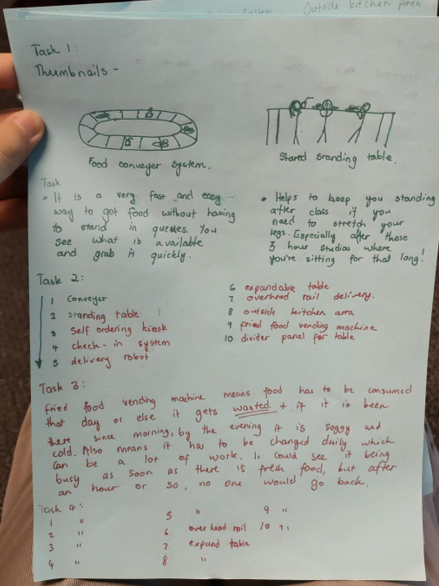 Outside kitchen Area
Task 1:
Thumbnails -
Food conveyer system.
Shared standing table.
Task
• It is a very fast and easy
way to got food without having
to stand in queues. You
see what is available
and grab it quickly.
• Helps to keep you standing
after class if you
need to stretch your
legs. Especially after those
3 hour studios where
you're sitting for that long!
Task 2:
1 conveyer
2 standing table
3 self ordering kiosk
4 check-in system
5 delivery robot
6 expandable table
7 overhead rail delivery.
8 outside kitchen area
9 fried food vending machine
10 divider panel for table
Task 3:
fried food vending machine means food has to be consumed
that day or else it gets wasted + if it is been
there since morning, by the evening it is soggy and
cold. Also means it has to be changed daily which
can be a lot of work. I could see it being
busy as soon as there is fresh food, but after
an hour or so, no one would go back.
Task 4:
1 "
2 "
3 "
4 "
5 "
6 over head rail
7 expand table
8 "
9 "
10 "